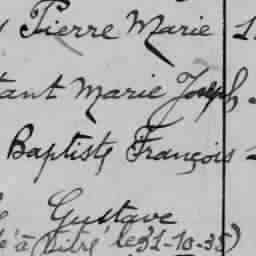 Pierre Marie
tant Marie Joseph
Baptiste François
Gustave
à Vitré le 31-10-35)